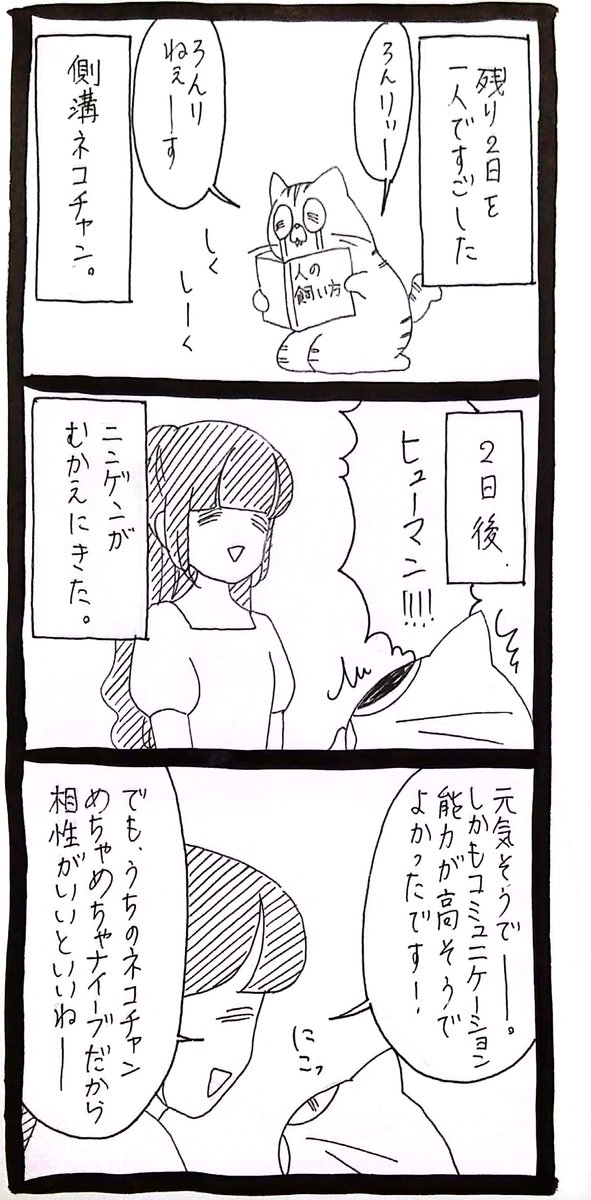 残り2日を
一人ですごした
ろんりぃー
ろんり
ねぇーす
側溝ネコチャン。
人の
飼い方
しく
しーく
2日後.
ヒューマン!!!!
ニンゲンが
むかえにきた。
元気そうでー。
しかもコミュニケーション
能力が高そうで
よかったです!
にこっ
でも、うちのネコチャン
めちゃめちゃナイーブだから
相性がいいといいねー